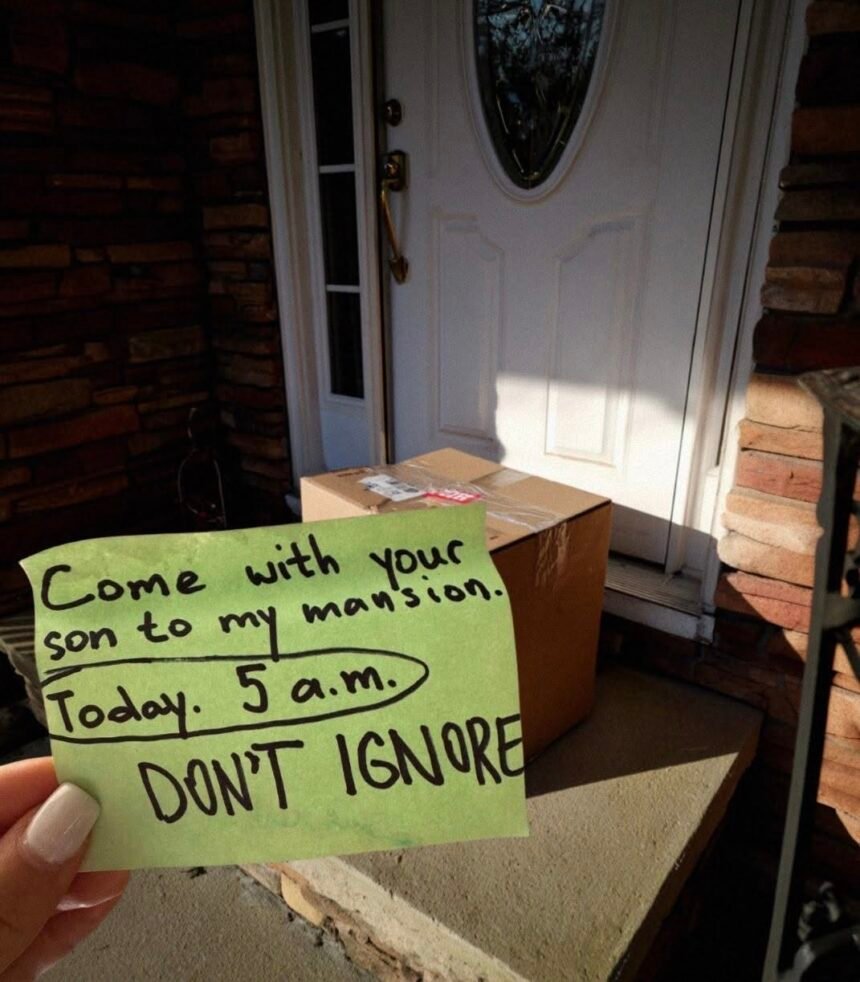 Come with your
son to my mansion.
Today. 5 a.m.
DON'T IGNORE